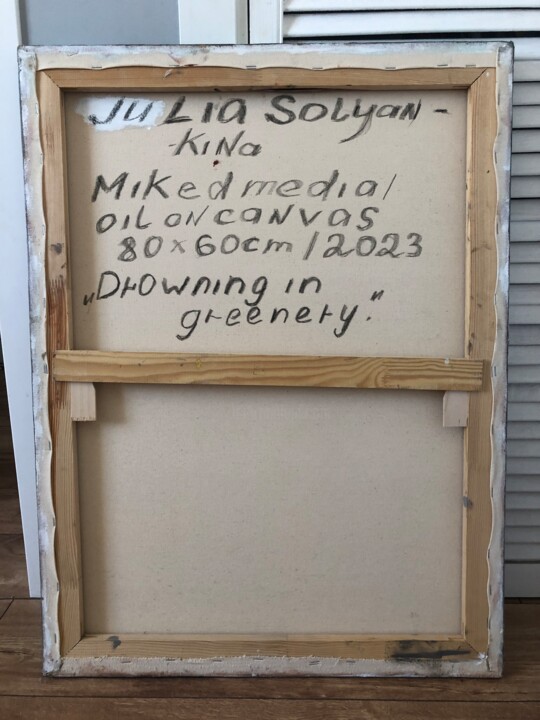 JULIA SOLYAN-
KINa
MIKed media/
OIL ON CANVAS
80x60cm/2023
„Drowning in
greenery."